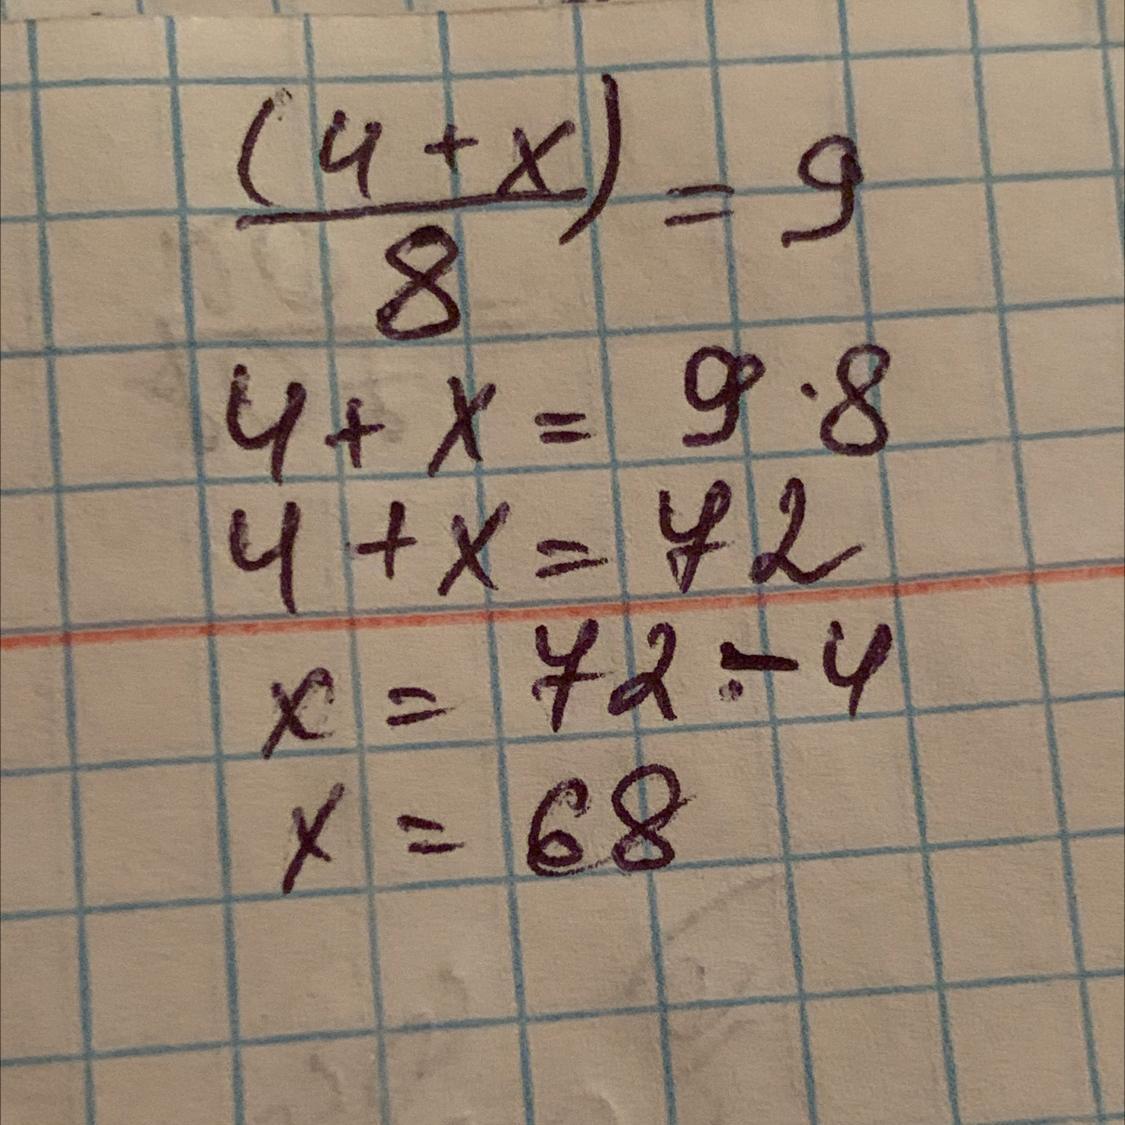 (4 + x)/8 = 9
4 + x = 9 · 8
4 + x = 72
x = 72 - 4
x = 68